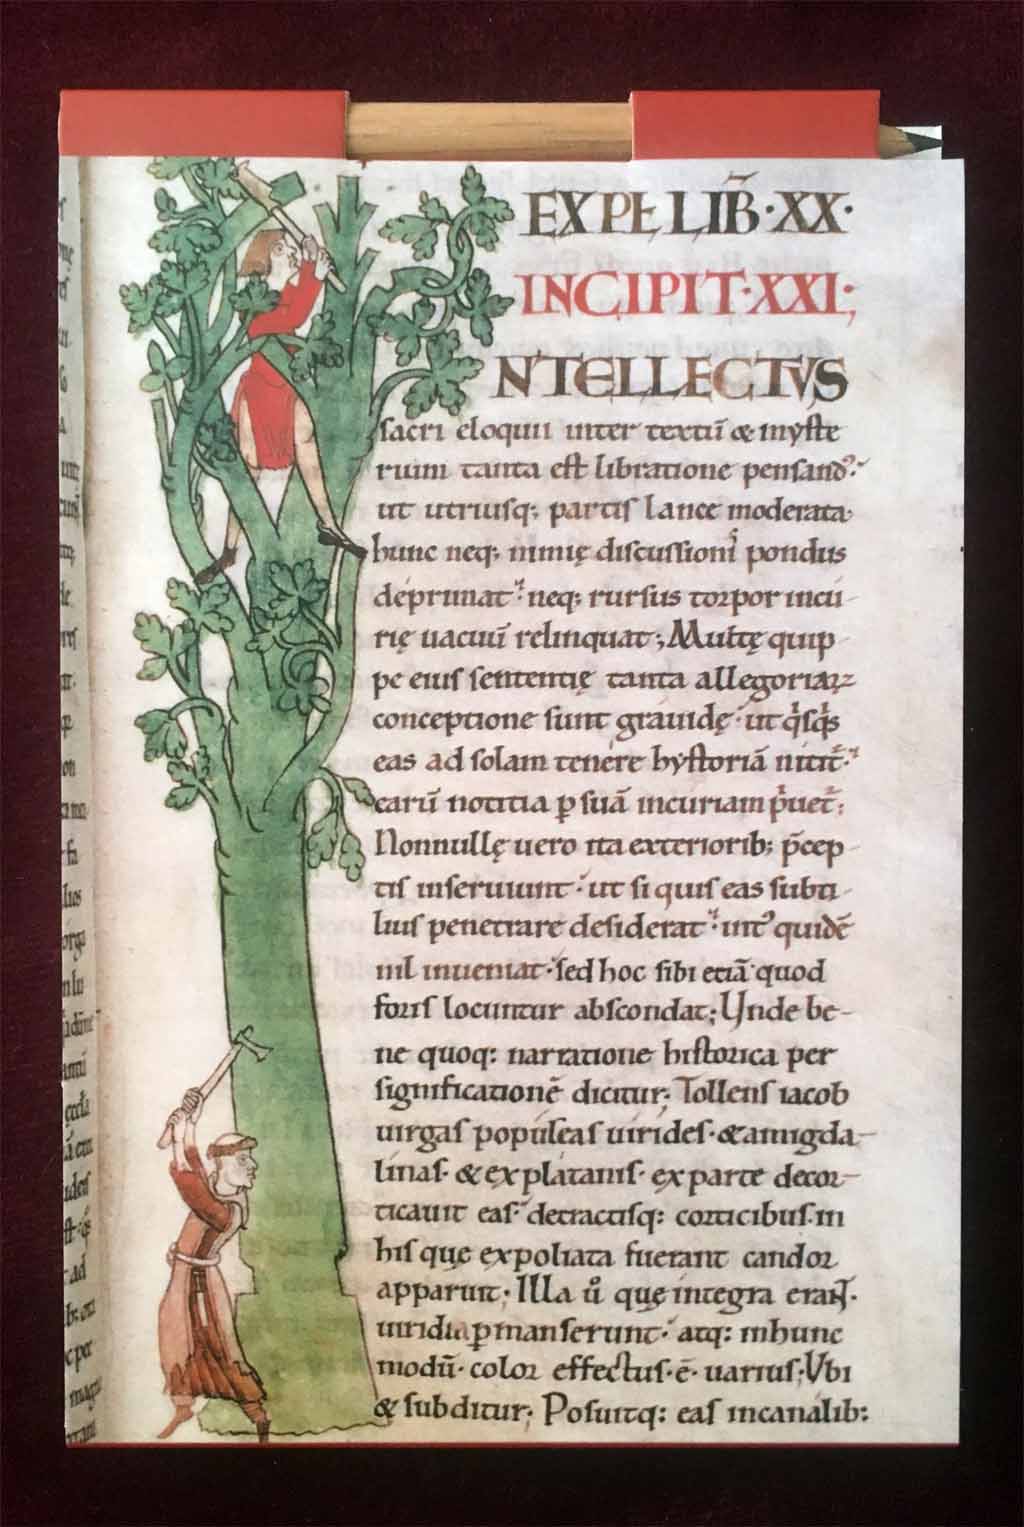 EXPŁ LIB̅·XX·
INCIPIT·XXI·;
NTELLECTVS
sacri eloquii inter textū & myste
rium tanta est libratione pensand᷒·
ut utriusq; partis lance moderata·
hunc neq; nimię discussionis pondus
deprimat· neq; rursus torpor incu-
rię uacuū relinquat; Multę quip
pe eius sententię tanta allegoriaꝝ
conceptione sunt grauidę· ut q̇sq̇s
eas ad solam tenere hystoriā nitit᷑·
earū notitia ꝑ suā incuriam p̈uet᷑;
Nonnullę uero ita exteriorib; p̄cep-
tis inseruiunt· ut si quis eas subti-
lius penetrare desiderat· int᷒ quidē
nil inueniat· sed hoc sibi etiā quod
foris locuntur abscondat; Unde be-
ne quoq: narratione historica per
significationē dicitur; Tollens iacob
uirgas populeas uirides· & amigda-
linas· & ex platanis· ex parte decor-
ticauit eas· detractisq: corticibus· in
his que expoliata fuerant candor
apparuit· Illa ů quę integra erant·
uiridia ꝑmanserunt· atq: in hunc
modū· color effectus· ē· uarius; Vbi
& subditur; Posuitq: eas in canalib: